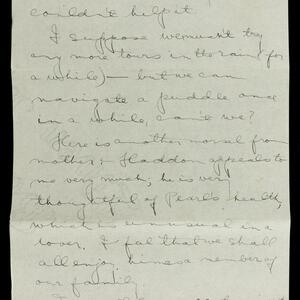 couldn't help it.
I suppose we mustn't try
any more tours in the rain (for
a while) — but we can
navigate a puddle once
in a while, can't we?
Here is another morsel from
mother: Haddon appeals to
me very much; he is very
thoughtful of Pearl's health,
which is unusual in a
lover. I feel that we shall
all enjoy him as a member of
our family